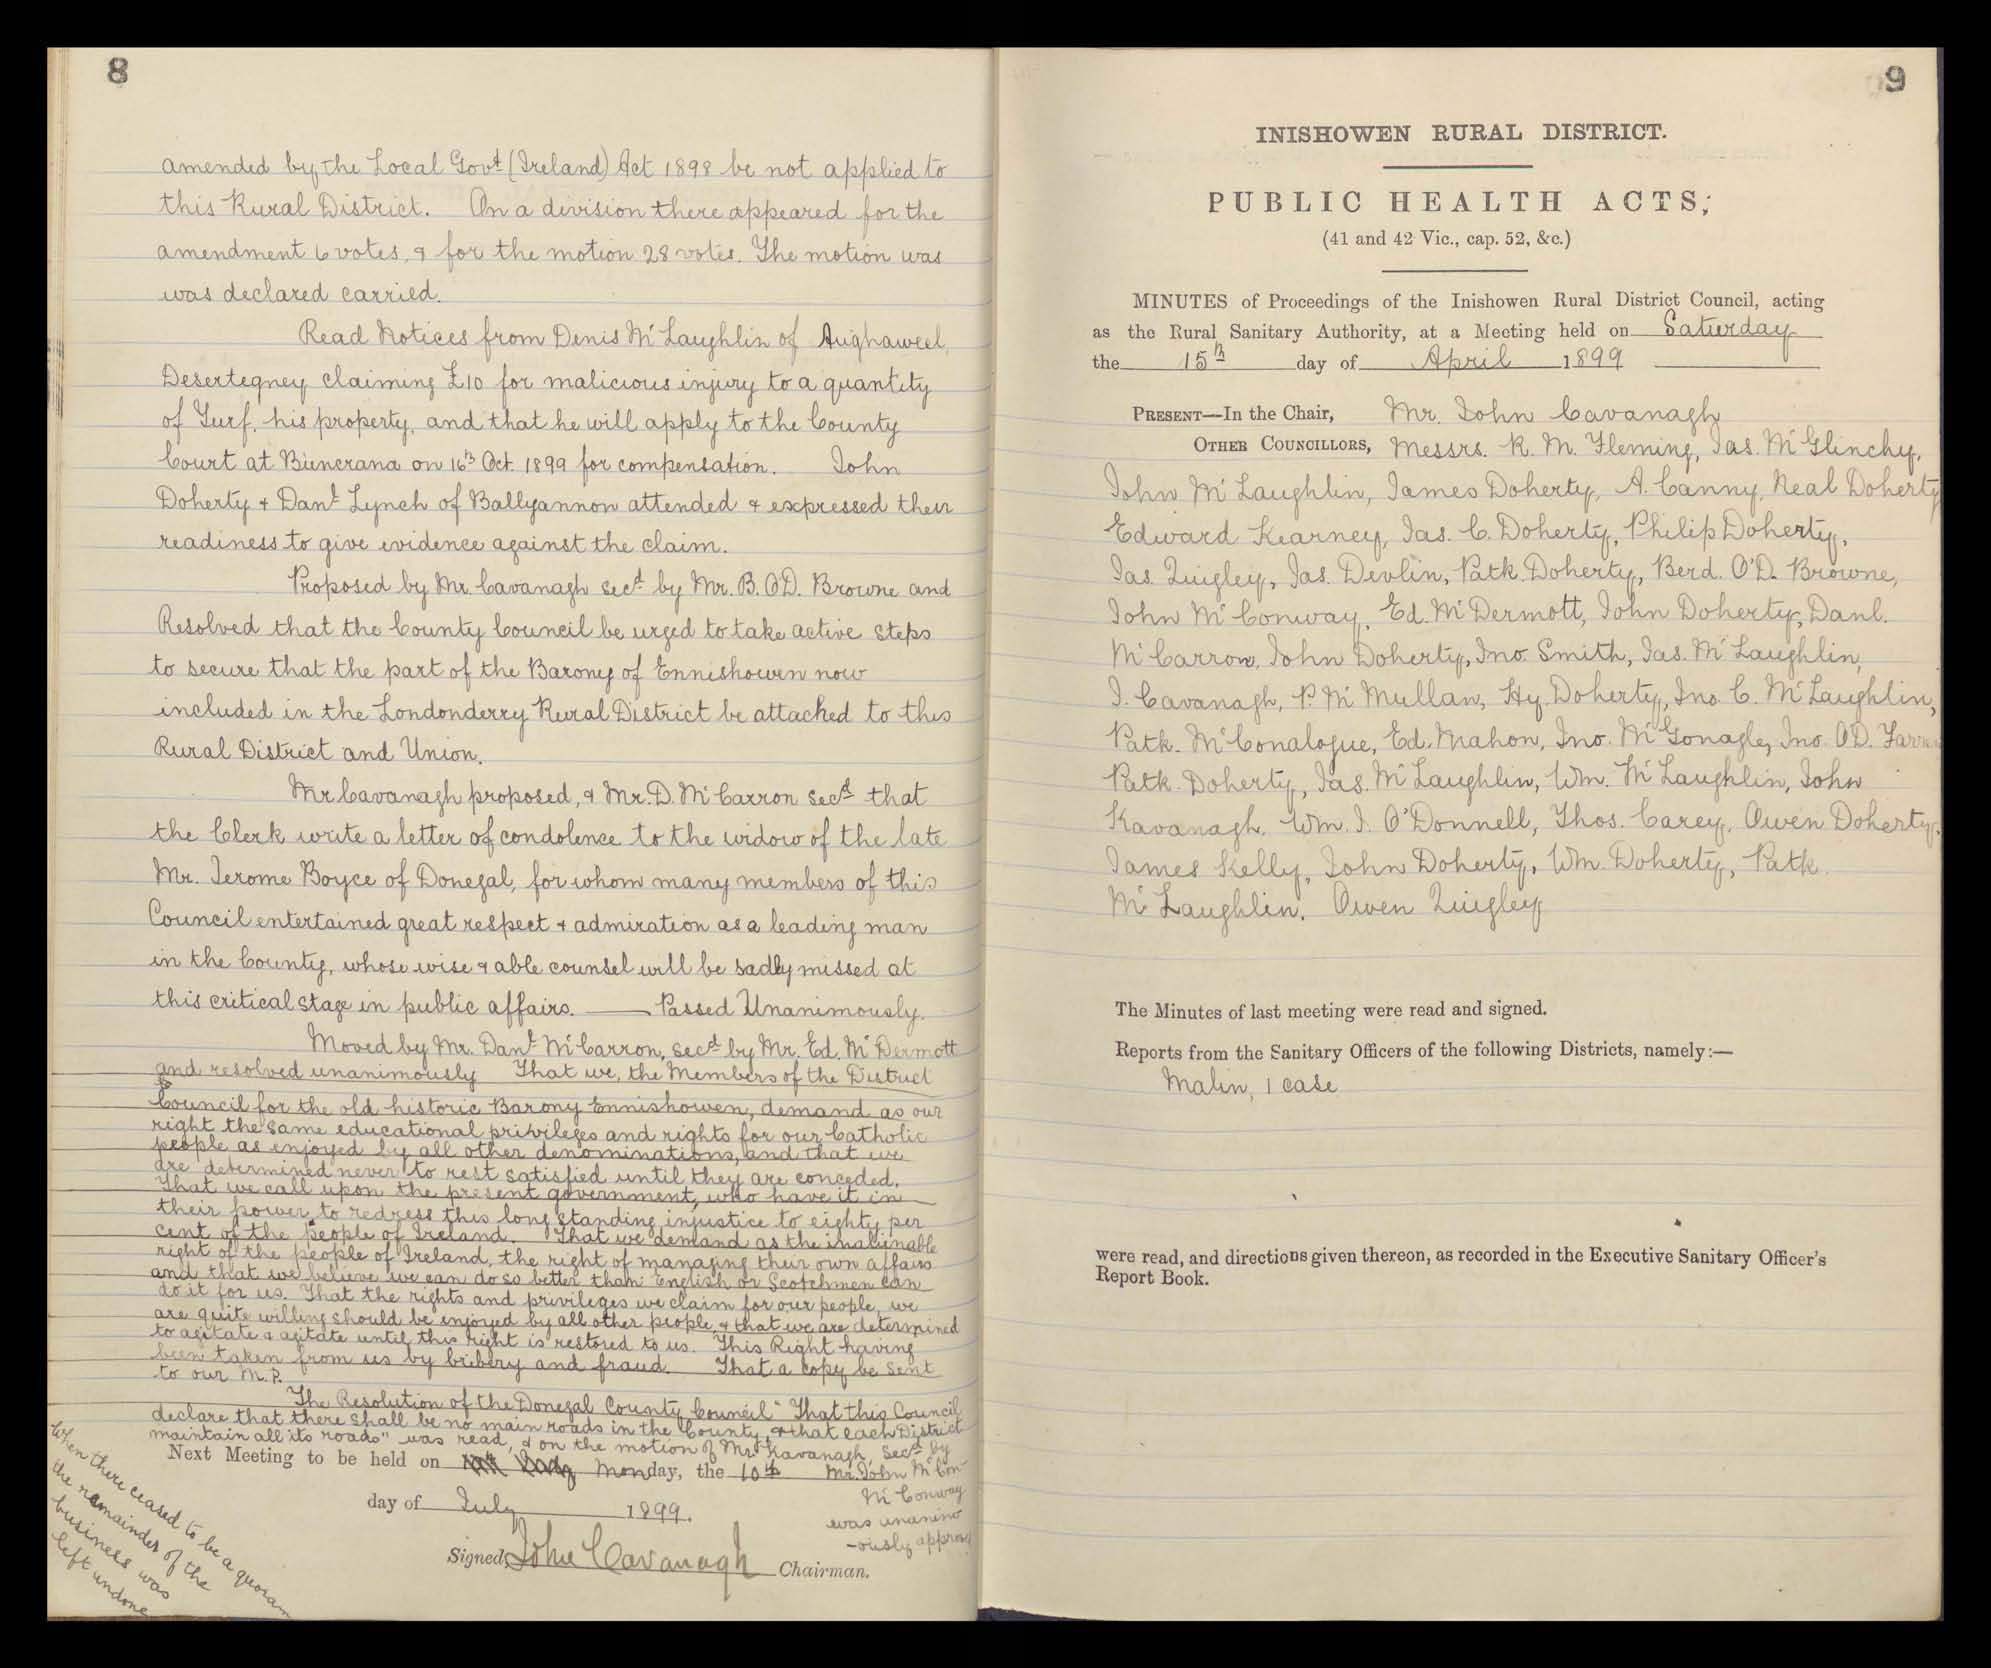 8
amended by the Local Govt (Ireland) Act 1898 be not applied to
this Rural District. On a division there appeared for the
amendment 6 votes, & for the motion 28 votes. The motion was
was declared carried.
Read Notices from Denis McLaughlin of Aughaweel,
Desertegney claiming £10 for malicious injury to a quantity
of Turf, his property, and that he will apply to the County
Court at Buncrana on 16th Oct. 1899 for compensation. John
Doherty & Danl Lynch of Ballyannon attended & expressed their
readiness to give evidence against the claim.
Proposed by Mr. Cavanagh secd by Mr. B. O'D. Browne and
Resolved that the County Council be urged to take active steps
to secure that the part of the Barony of Ennishowen now
included in the Londonderry Rural District be attached to this
Rural District and Union.
Mr Cavanagh proposed, & Mr. D. McCarron secd that
the Clerk write a letter of condolence to the widow of the late
Mr. Jerome Boyce of Donegal, for whom many members of this
Council entertained great respect & admiration as a leading man
in the County, whose wise & able counsel will be sadly missed at
this critical stage in public affairs. — Passed Unanimously.
Moved by Mr. Danl McCarron, secd by Mr. Ed. McDermott
and resolved unanimously That we, the Members of the District
Council for the old historic Barony Ennishowen, demand as our
right the same educational privileges and rights for our Catholic
people as enjoyed by all other denominations, and that we
are determined never to rest satisfied until they are conceded.
That we call upon the present government, who have it in
their power to redress this long standing injustice to eighty per
cent of the people of Ireland. That we demand as the inalienable
right of the people of Ireland, the right of managing their own affairs
and that we believe we can do so better than English or Scotchmen can
do it for us. That the rights and privileges we claim for our people, we
are quite willing should be enjoyed by all other people, & that we are determined
to agitate & agitate until this right is restored to us. This Right having
been taken from us by bribery and fraud. That a copy be sent
to our M.P.
The Resolution of the Donegal County Council "That this Council
declare that there shall be no main roads in the County, & that each District
maintain all its roads" was read, & on the motion of Mr. Kavanagh, secd by
Mr. John McCon-
McConway
was unanim
-ously approvd
Next Meeting to be held on Monday, the 10th
day of July 1899.
Signed, John Cavanagh Chairman.
When there ceased to be a quorum
the remainder of the
business was
left undone
9
INISHOWEN RURAL DISTRICT.
PUBLIC HEALTH ACTS;
(41 and 42 Vic., cap. 52, &c.)
MINUTES of Proceedings of the Inishowen Rural District Council, acting
as the Rural Sanitary Authority, at a Meeting held on Saturday
the 15th day of April 1899
PRESENT—In the Chair, Mr. John Cavanagh
OTHER COUNCILLORS, Messrs. R. M. Fleming, Jas. McGlinchy,
John McLaughlin, James Doherty, A. Canny, Neal Doherty
Edward Kearney, Jas. C. Doherty, Philip Doherty,
Jas. Quigley, Jas. Devlin, Patk. Doherty, Berd. O'D. Browne,
John McConway, Ed. McDermott, John Doherty, Danl.
McCarron, John Doherty, Jno. Smith, Jas. McLaughlin,
J. Cavanagh, P. McMullan, Hy. Doherty, Jno. C. McLaughlin,
Patk. McConalogue, Ed. Mahon, Jno. McGonagle, Jno. O'D.
Patk. Doherty, Jas. McLaughlin, Wm. McLaughlin, John
Kavanagh, Wm. J. O'Donnell, Thos. Carey, Owen Doherty,
James Kelly, John Doherty, Wm. Doherty, Patk.
McLaughlin. Owen Quigley
The Minutes of last meeting were read and signed.
Reports from the Sanitary Officers of the following Districts, namely:—
Malin, 1 case
were read, and directions given thereon, as recorded in the Executive Sanitary Officer's
Report Book.